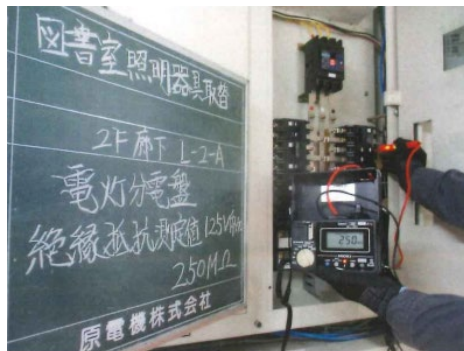 図書室照明器具取替
2F廊下 L-2-A
電灯分電盤
絶縁抵抗測定値125V
250MΩ
原電機株式会社
250